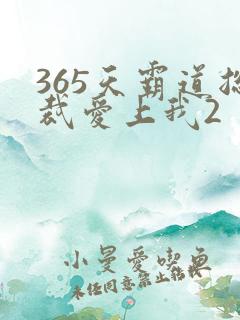 365天霸道总
裁爱上我2
小曼爱吃鱼
未经同意禁止转载